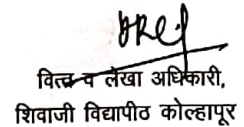 वित्त व लेखा अधिकारी,
शिवाजी विद्यापीठ कोल्हापूर